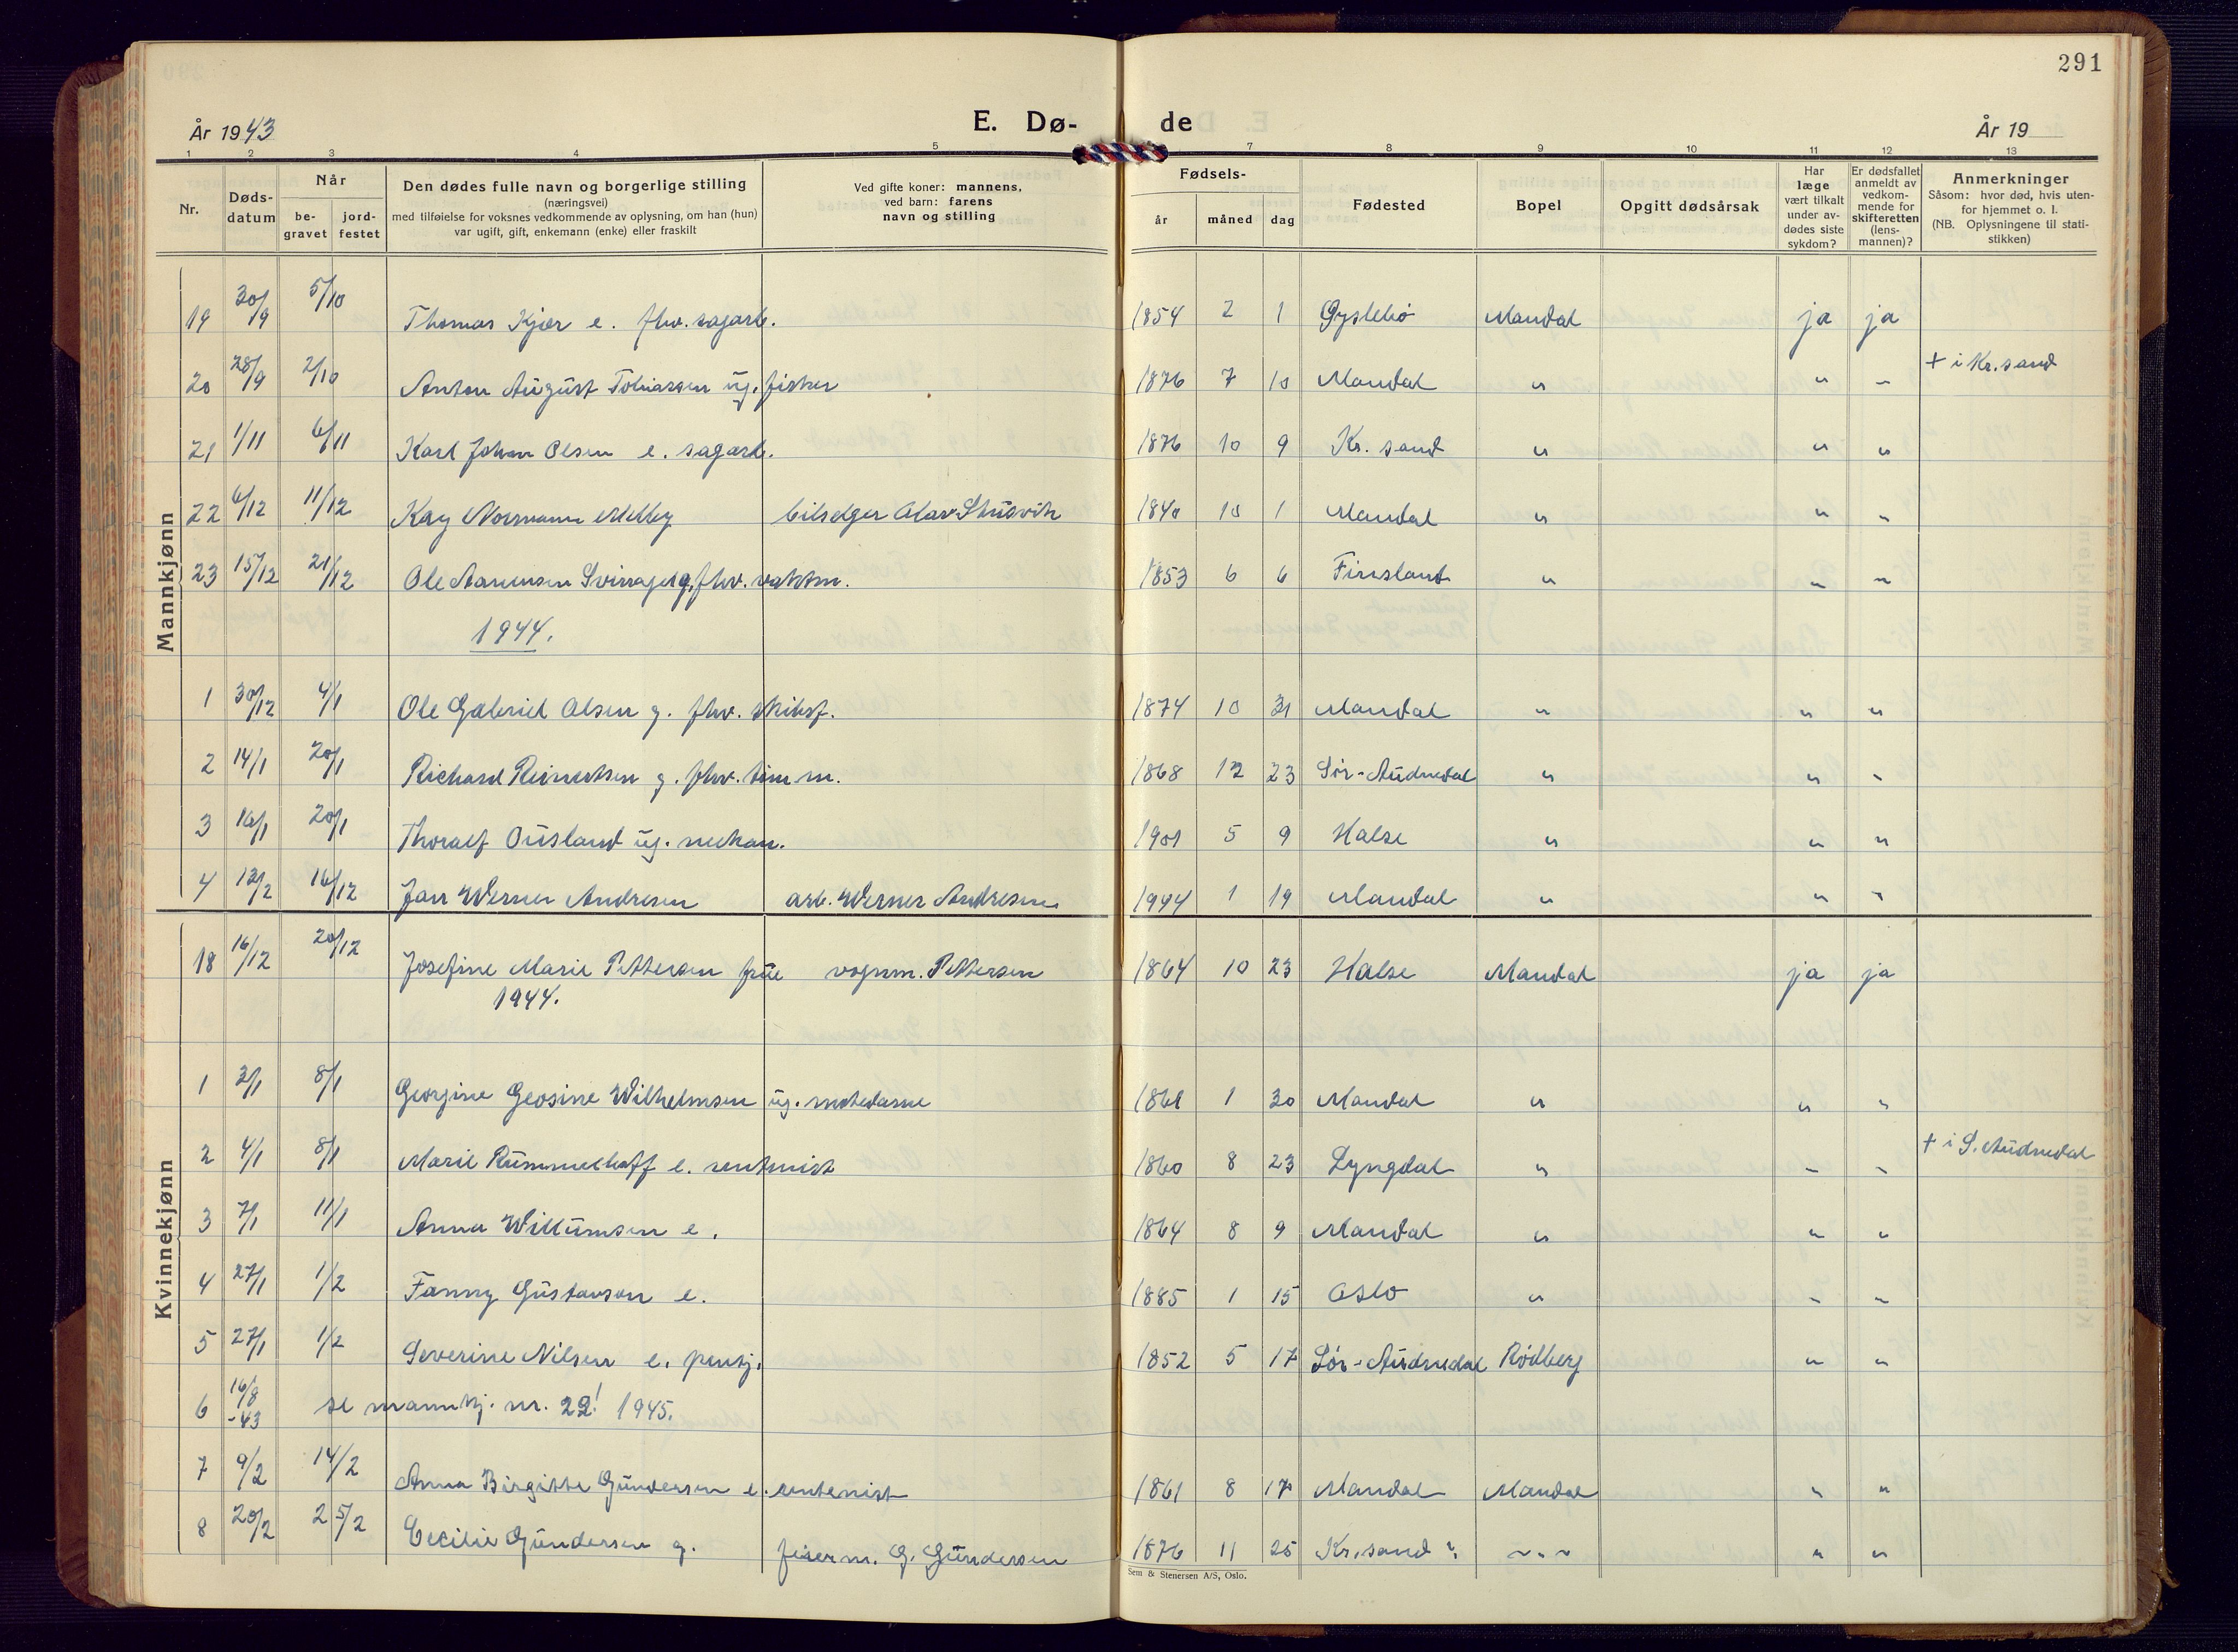 291
År 1943
E. Dø-
de
År 19
1 2 3 4 5 7 8 9 10 11 12 13
Nr.
Døds-
datum
Når
be-
gravet
jord-
festet
Den dødes fulle navn og borgerlige stilling
(næringsvei)
med tilføielse for voksnes vedkommende av oplysning, om han (hun)
var ugift, gift, enkemann (enke) eller fraskilt
Ved gifte koner: mannens,
ved barn: farens
navn og stilling
Fødsels-
år måned dag
Fødested
Bopel
Opgitt dødsårsak
Har
læge
vært tilkalt
under av-
dødes siste
sykdom?
Er dødsfallet
anmeldt av
vedkom-
mende for
skifteretten
(lens-
mannen)?
Anmerkninger
Såsom: hvor død, hvis uten-
for hjemmet o. l.
(NB. Oplysningene til stati-
stikken)
Mannkjønn
19 30/9 5/10 Thomas Kjær e. fhv. sagarb. 1854 2 1 Øyslebø Mandal ja ja
20 28/9 2/10 Anton August Tobiassen ug. fisker 1876 7 10 Mandal " " " + i Kr.sand
21 1/11 6/11 Karl Johan Olsen e. sagarb. 1876 10 9 Kr. sand " " "
22 6/12 11/12 Kay Normann Melby bilselger Olav 1840 10 1 Mandal " " "
23 15/12 21/12 Ole fhv. vaktm. 1853 6 6 Finsland " " "
1944.
1 30/12 4/1 Ole Gabriel Olsen g. fhv. skibsf. 1874 10 31 Mandal " " "
2 14/1 20/1 Richard Reinertsen g. fhv. tømm. 1868 12 23 Sør-Audnedal " " "
3 16/1 20/1 Thoralf Ousland ug. mekan. 1901 5 9 Halse " " "
4 12/2 16/12 Jan Werner Andresen arb. Werner Andresen 1944 1 19 Mandal " " "
Kvinnekjønn
18 16/12 20/12 Josefine Marie Pettersen frue vognm. Pettersen 1864 10 23 Halse Mandal ja ja
1944.
1 2/1 8/1 Georgine Geosine Wilhelmsen ug. motedame 1861 1 30 Mandal " " "
2 4/1 8/1 Marie Rummelhoff e. rentenist 1860 8 23 Lyngdal " " " + i S. Audnedal
3 7/1 11/1 Anna Willumsen e. 1864 8 9 Mandal " " "
4 27/1 1/2 Fanny Gustavson e. 1885 1 15 Oslo " " "
5 27/1 1/2 Severine Nilsen e. pensj. 1852 5 17 Sør-Audnedal Rødberg " "
6 16/8 -43 se mannkj. nr. 22! 1945.
7 9/2 14/2 Anna Birgitte Gundersen e. rentenist 1861 8 17 Mandal Mandal " "
8 20/2 25/2 Cecilie Gundersen g. feierm. G. Gundersen 1876 11 25 Kr.sand " " " "
Sem & Stenersen A/S, Oslo.